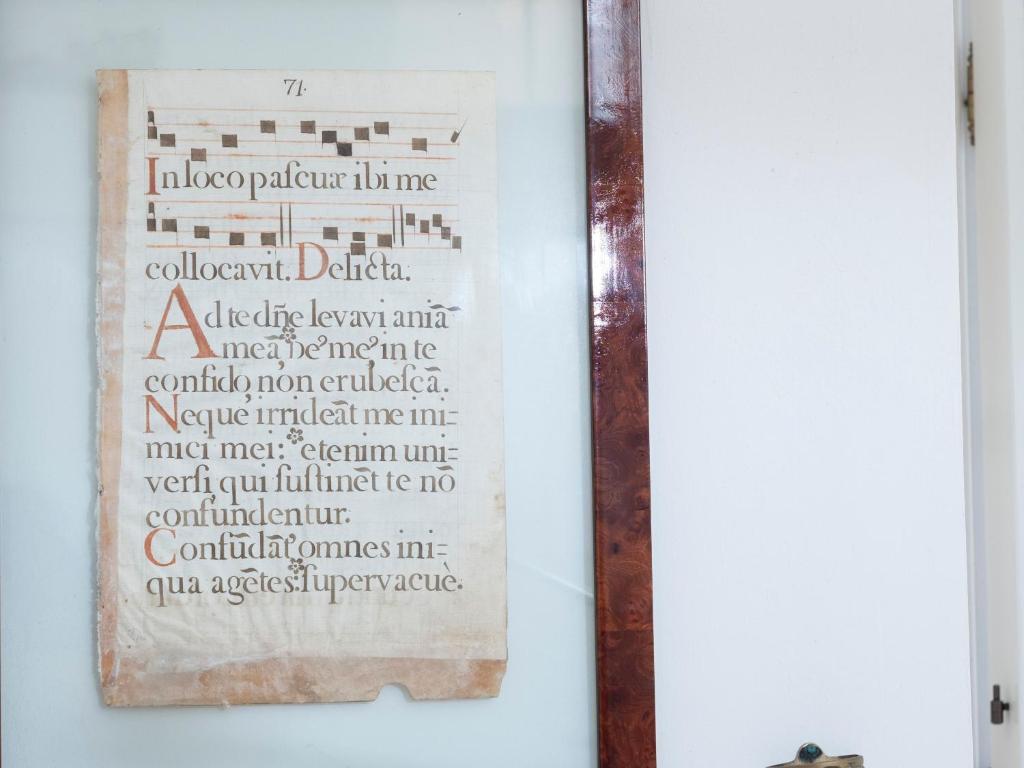 71.
In loco paſcuæ ibi me
collocavit. Delicta.
Ad te dñe levavi aniā
meā, De⁹ me⁹, in te
confido, non erubeſcā.
Neque irrideāt me ini=
mici mei: etenim uni=
verſi, qui ſuſtinēt te nō
confundentur.
Confūdāt' omnes ini=
qua agētes: ſupervacuè.